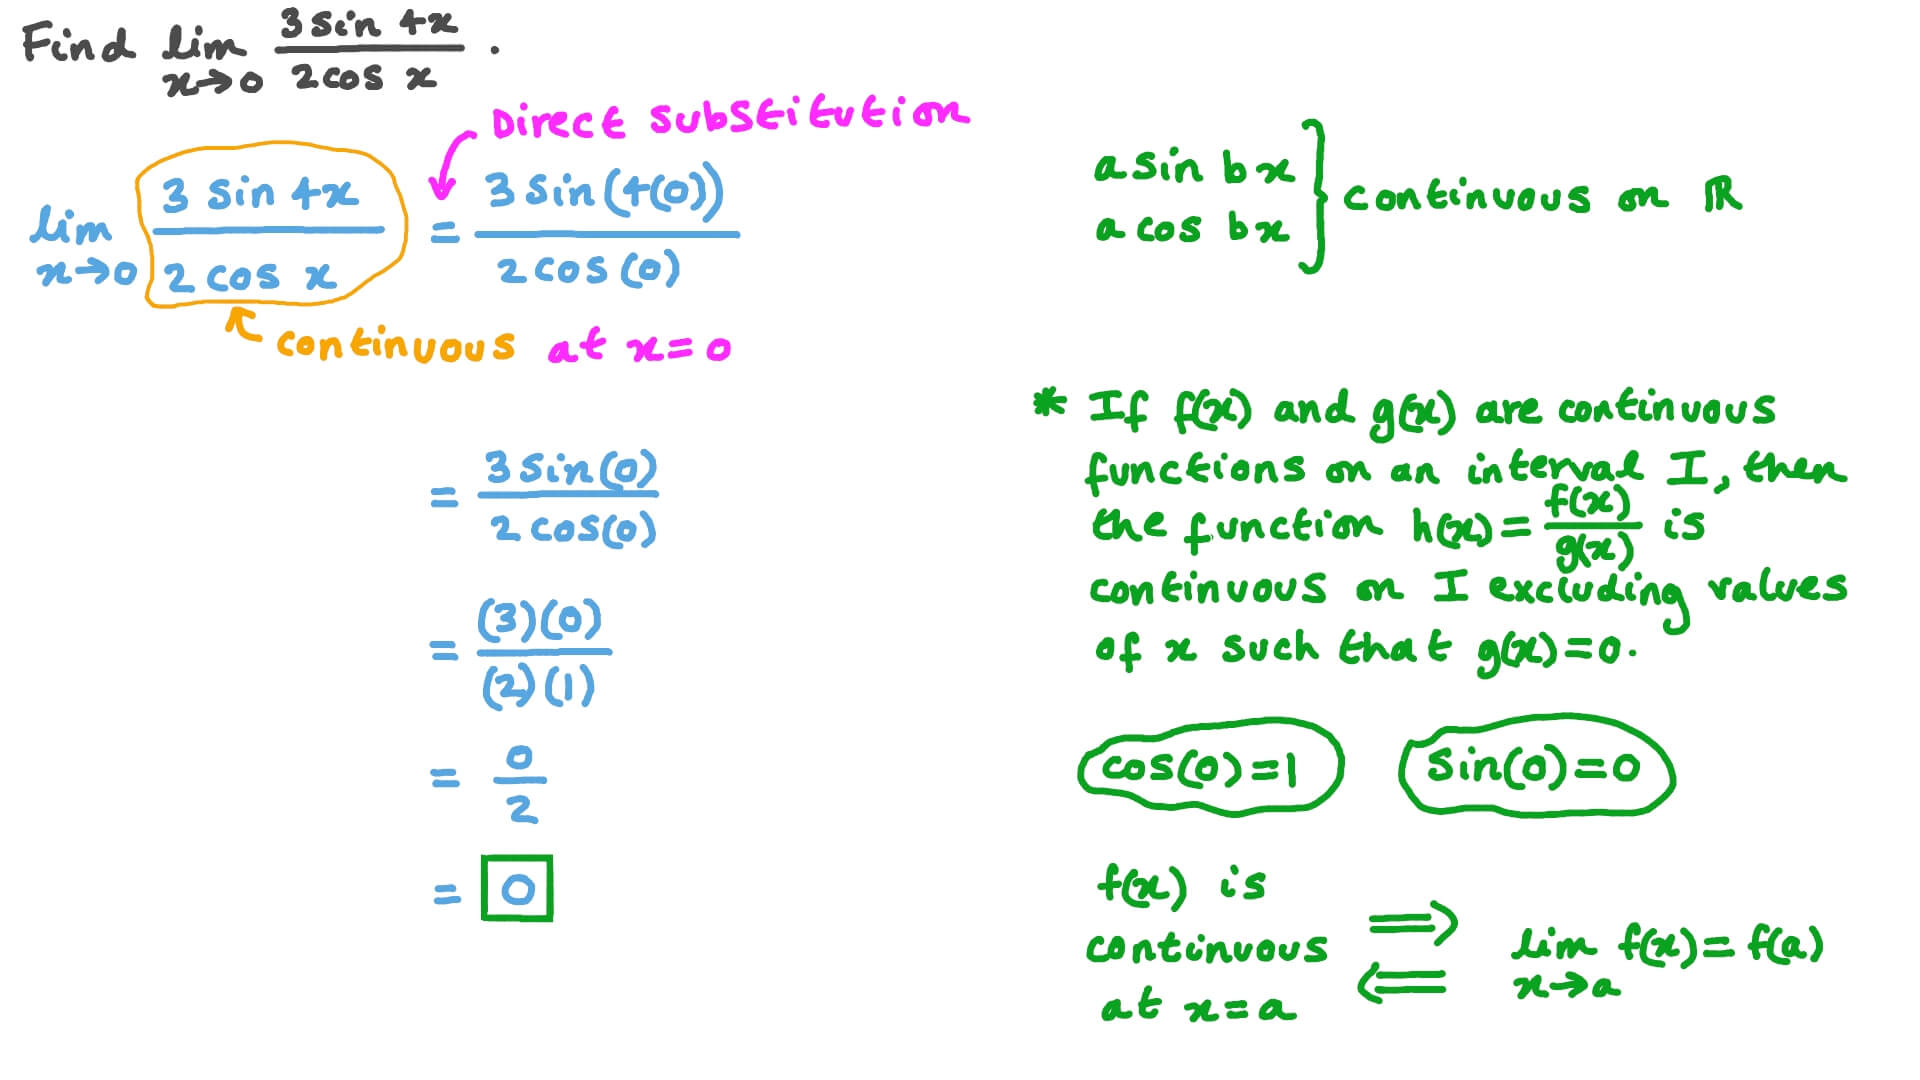 Find lim x→0 3 sin 4x / 2 cos x .
Direct substitution
lim x→0 3 sin 4x / 2 cos x = 3 sin (4(0)) / 2 cos (0)
continuous at x = 0
= 3 sin(0) / 2 cos(0)
= (3)(0) / (2)(1)
= 0 / 2
= 0
a sin bx
a cos bx } continuous on ℝ
* If f(x) and g(x) are continuous
functions on an interval I, then
the function h(x) = f(x) / g(x) is
continuous on I excluding values
of x such that g(x) = 0.
cos(0) = 1 sin(0) = 0
f(x) is
continuous
at x = a
⟹
⟸
lim x→a f(x) = f(a)